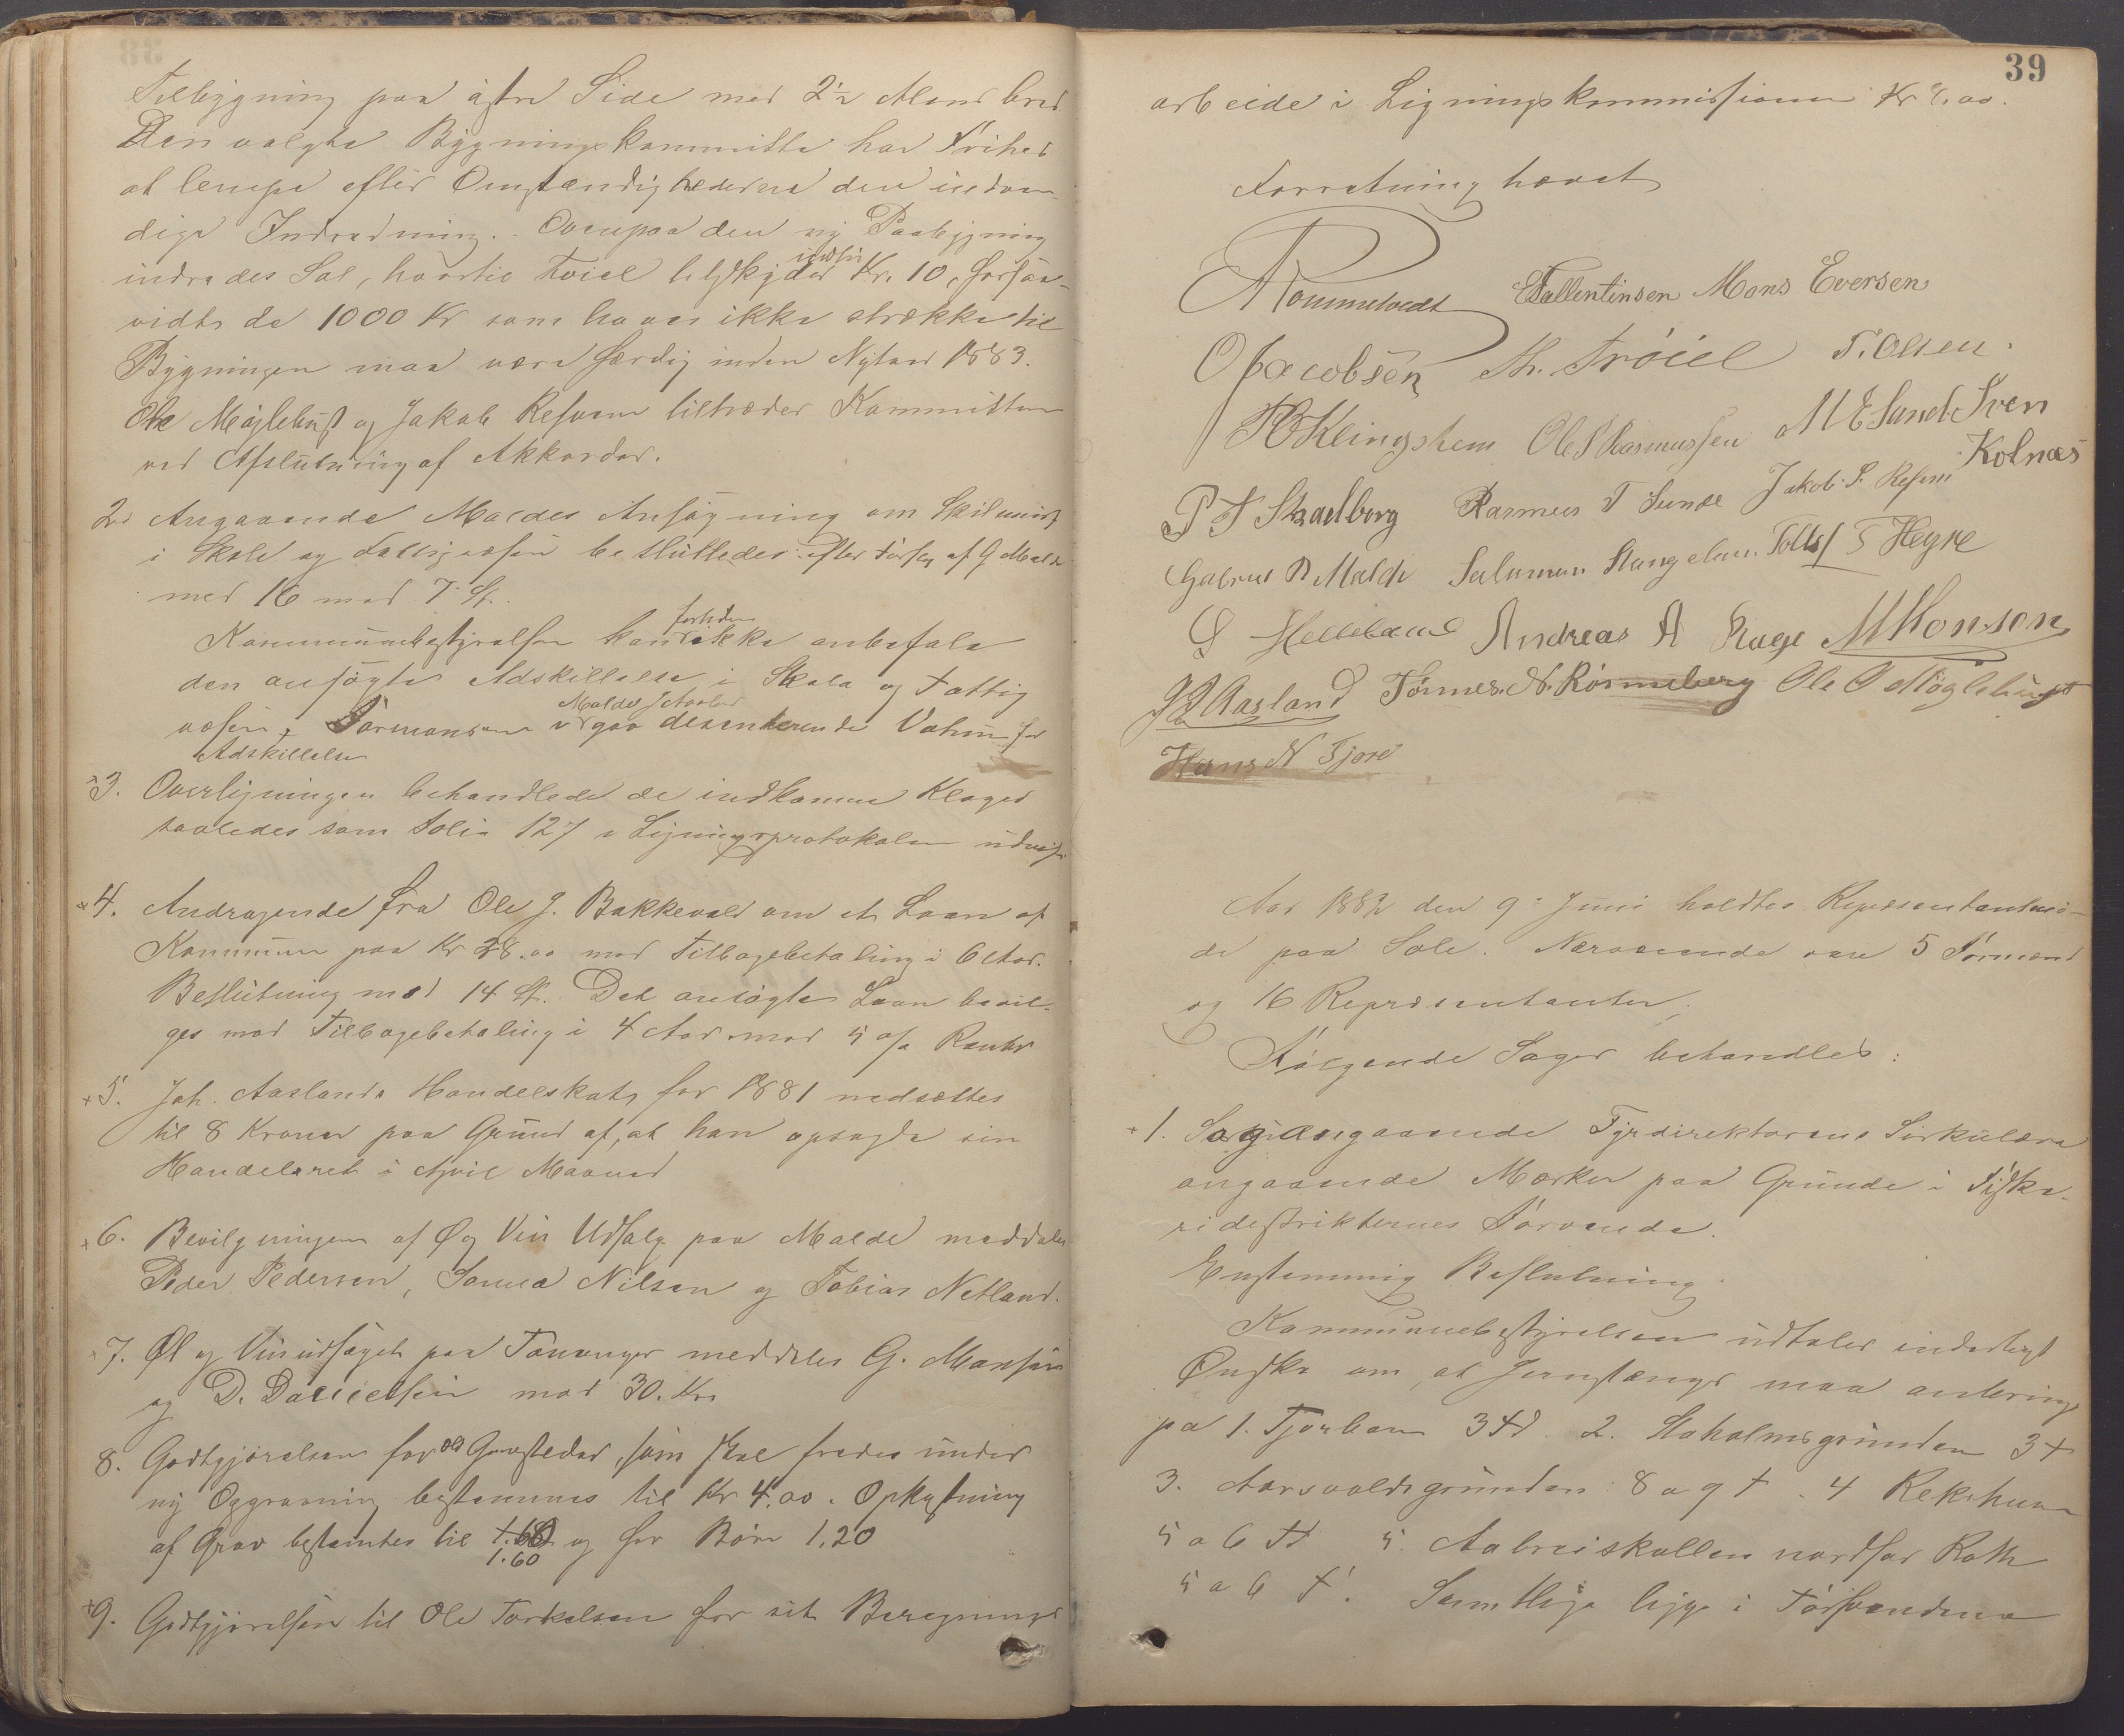 Tilbygning paa østre Side med 2½ Alens bred
Den valgte Bygningskommitte har Frihed
at lempe efter Omstændighederne den indven-
dige Indredning. Ovenpaa den ny Paabygning
indredes Sal, hvortil Trøiel tilskyder indtil Kr. 10, forsaa-
vidt de 1000 Kr som haves ikke strække til
Bygningen maa være færdig inden Nytaar 1883.
Ole Møglebust og Jakob Refsnes tiltræder Kommitteen
ved Afslutning af Akkorder.
2. Angaaende Maldes Ansøgning om Skilsmisse
i Skole og Fattigvæsen besluttedes efter Forslag af G Malde
med 16 mod 7 St.
Kommunebestyrelsen kan fortiden ikke anbefale
den ansøgte Adskillelse i Skole og Fattig
væsen. Formanden Maldes gav desenterende Votum for
Adskillelse
3. Overligningen behandlede de indkomne Klager
saaledes som Folio 127 i Ligningsprotokolen udviser
4. Andragende fra Ole J. Bakkevold om et Laan af
Kommunen paa Kr 28.00 mod Tilbagebetaling i 6 Aar.
Beslutning med 14 St. Det ansøgte Laan bevil-
ges mod Tilbagebetaling i 4 Aar mod 5 o/o Rente
5. Joh. Aaslands Handelskat for 1881 nedsættes
til 8 Kroner paa Grund af, at han opsagde sin
Handelsret i April Maaned
6. Bevilgningen af Øl og Vin Udsalg paa Malde meddeles
Peder Pedersen, Samuel Nilsen og Tobias Netland.
7. Øl og Vinudsalget paa Tananger meddeles G. Monsen
og D. Danielsen mod 30. Kr.
8. Godtgjørelsen for old Gravsteder, som skal fredes under
ny Opgravning bestemmes til Kr 4.00. Opkastning
af Grav bestemtes til 1.60 og for Børn 1,20
1.60
9. Godtgjørelsen til Ole Torkelsen for sit Beregnings
39
arbeide i Ligningskommissionen Kr 8.00.
Forretning hævet
A Rommetvedt E Tallentinsen Mons Eversen
O Jacobsen Th. Trøiel T. Olsen.
P B Kleingshem Ole S Rasmussen M E Sunde Sven
Kolnæs
P T Skadberg Rasmus T Sunde Jakob P. Refsnes
Gabriel P Malde Salomon Stangeland Tollef T Heyne
G Helleland Andreas A Hage M Monson
J J Aasland Tønnes N. Rønneberg Ole O Møglebust
Hans N Tjore
Aar 1882 den 9de Juni holdtes Repræsentantmø-
de paa Sole. Nærværende vare 5 Formænd
og 16 Repræsentanter.
Følgende Sager behandles:
1. Sag angaaende Fyrdirektørens Sirkulære
angaaende Mærker paa Grunde i Fiske-
ridistrikternes Farvande.
Enstemmig Beslutning
Kommunebestyrelsen udtaler inderligt
Ønske om, at Jernstænger maa anbringes
pa 1. Tjorbaen 3 Fd. 2. Staholmsgrunden 3 F
3. Aarsvoldsgrunden 8 a 9 F. 4 Rekehuen
5 a 6 F 5. Aabreiskallen nordfor Rott
5 a 6 F. Samtlige ligge i Farvandene